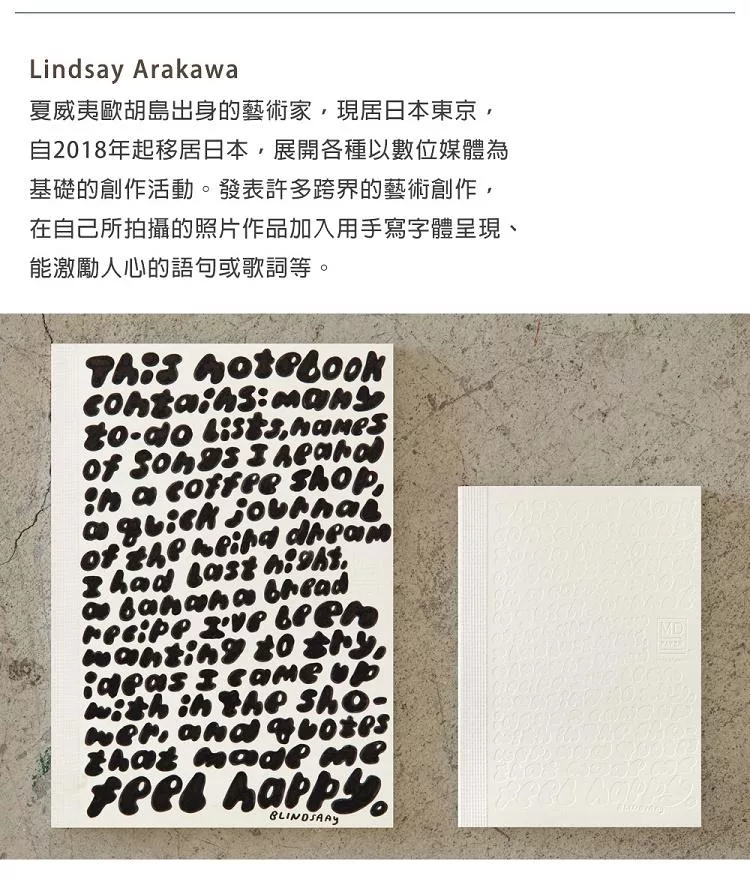 Lindsay Arakawa
夏威夷歐胡島出身的藝術家，現居日本東京，
自2018年起移居日本，展開各種以數位媒體為
基礎的創作活動。發表許多跨界的藝術創作，
在自己所拍攝的照片作品加入用手寫字體呈現、
能激勵人心的語句或歌詞等。
This notebook
contains: many
to-do lists, names
of songs I heard
in a coffee shop,
a quick journal
of the weird dream
I had last night,
a banana bread
recipe I've been
wanting to try,
ideas I came up
with in the sho-
wer, and quotes
that made me
feel happy.
BLINDSAAY
MD
feel happy.
BLINDSAAY